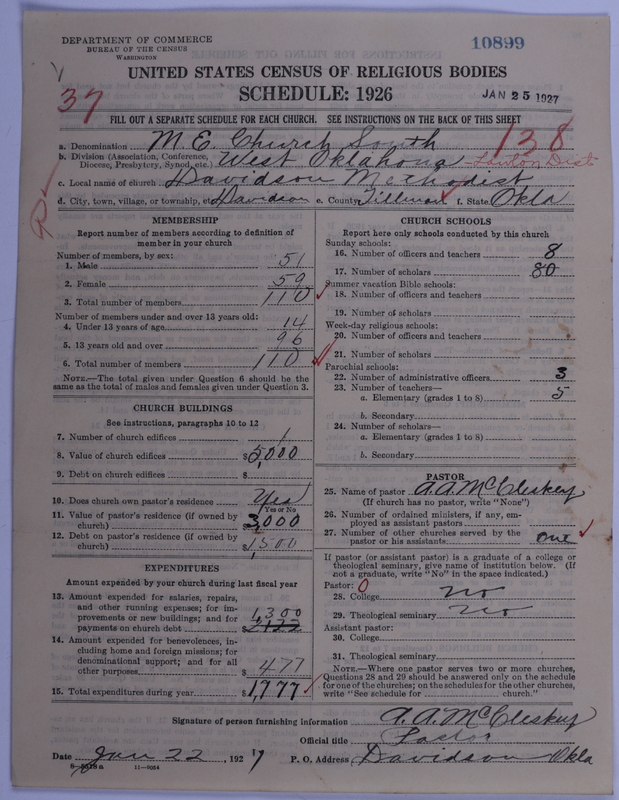 DEPARTMENT OF COMMERCE
BUREAU OF THE CENSUS
WASHINGTON
10899
UNITED STATES CENSUS OF RELIGIOUS BODIES
SCHEDULE: 1926
JAN 25 1927
37
FILL OUT A SEPARATE SCHEDULE FOR EACH CHURCH. SEE INSTRUCTIONS ON THE BACK OF THIS SHEET
138
a. Denomination M. E. Church South
b. Division (Association, Conference, Diocese, Presbytery, Synod, etc.) West Oklahoma Lawton Dist
c. Local name of church Davidson Methodist
d. City, town, village, or township, etc. Davidson e. County Tillman f. State Okla
MEMBERSHIP
Report number of members according to definition of member in your church
Number of members, by sex:
1. Male 51
2. Female 59
3. Total number of members 110
Number of members under and over 13 years old:
4. Under 13 years of age 14
5. 13 years old and over 96
6. Total number of members 110
NOTE.—The total given under Question 6 should be the same as the total of males and females given under Question 3.
CHURCH BUILDINGS
See instructions, paragraphs 10 to 12
7. Number of church edifices 1
8. Value of church edifices $5,000
9. Debt on church edifices $
10. Does church own pastor's residence Yes
Yes or No
11. Value of pastor's residence (if owned by church) 3,000
12. Debt on pastor's residence (if owned by church) $1500
EXPENDITURES
Amount expended by your church during last fiscal year
13. Amount expended for salaries, repairs, and other running expenses; for improvements or new buildings; and for payments on church debt 1,300
14. Amount expended for benevolences, including home and foreign missions; for denominational support; and for all other purposes $ 477
15. Total expenditures during year $1,777
CHURCH SCHOOLS
Report here only schools conducted by this church
Sunday schools:
16. Number of officers and teachers 8
17. Number of scholars 80
Summer vacation Bible schools:
18. Number of officers and teachers
19. Number of scholars
Week-day religious schools:
20. Number of officers and teachers
21. Number of scholars
Parochial schools:
22. Number of administrative officers 3
23. Number of teachers—
a. Elementary (grades 1 to 8) 5
b. Secondary
24. Number of scholars—
a. Elementary (grades 1 to 8)
b. Secondary
PASTOR
25. Name of pastor A. A. McCleskey
(If church has no pastor, write "None")
26. Number of ordained ministers, if any, employed as assistant pastors
27. Number of other churches served by the pastor or his assistants One
If pastor (or assistant pastor) is a graduate of a college or theological seminary, give name of institution below. (If not a graduate, write "No" in the space indicated.)
Pastor: 0
28. College no
29. Theological seminary no
Assistant pastor:
30. College
31. Theological seminary
NOTE.—Where one pastor serves two or more churches, Questions 28 and 29 should be answered only on the schedule for one of the churches; on the schedules for the other churches, write "See schedule for ........ church."
Signature of person furnishing information A. A. McCleskey
Official title Pastor
Date Jan 22, 1927 P. O. Address Davidson Okla
11—9054